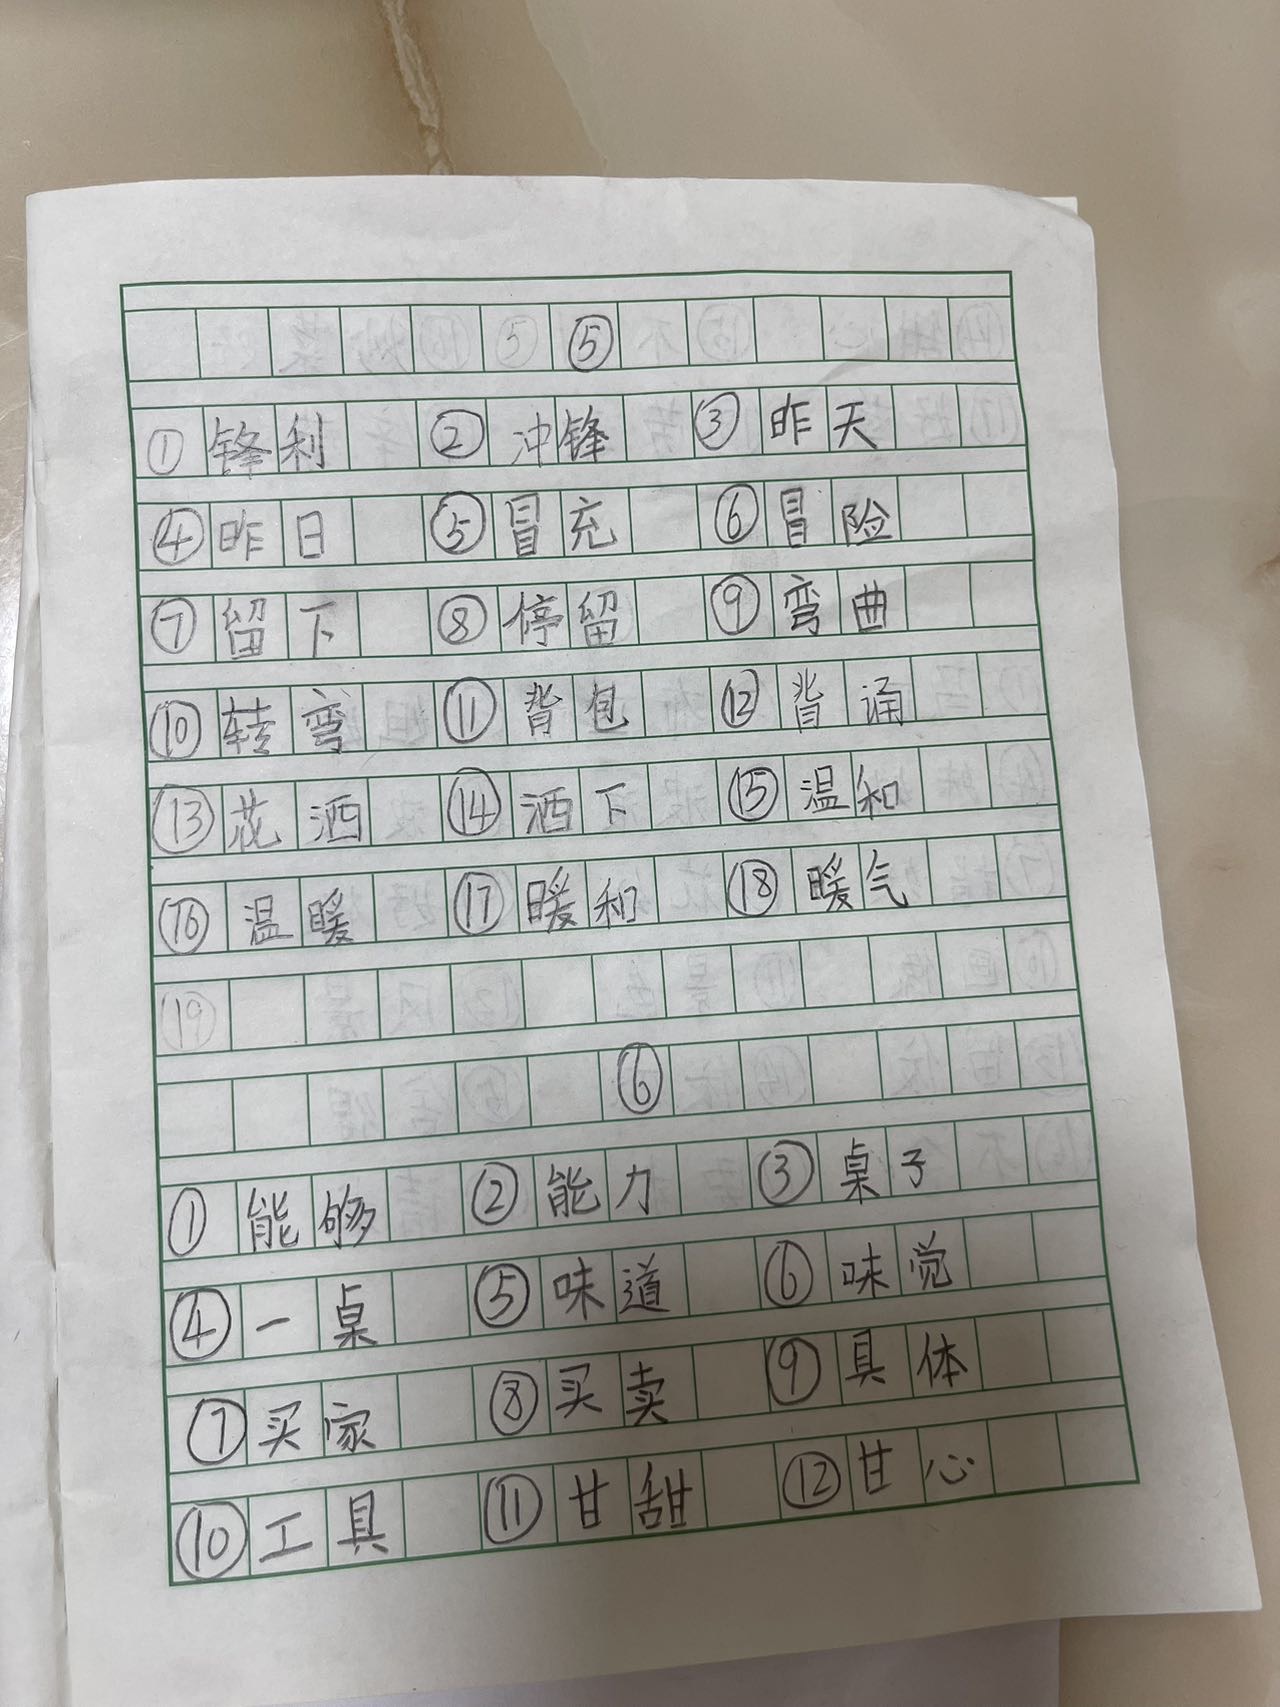 ⑤
①锋利 ②冲锋 ③昨天
④昨日 ⑤冒充 ⑥冒险
⑦留下 ⑧停留 ⑨弯曲
⑩转弯 ⑪背包 ⑫背诵
⑬花洒 ⑭洒下 ⑮温和
⑯温暖 ⑰暖和 ⑱暖气
⑲
⑥
①能够 ②能力 ③桌子
④一桌 ⑤味道 ⑥味觉
⑦买家 ⑧买卖 ⑨具体
⑩工具 ⑪甘甜 ⑫甘心